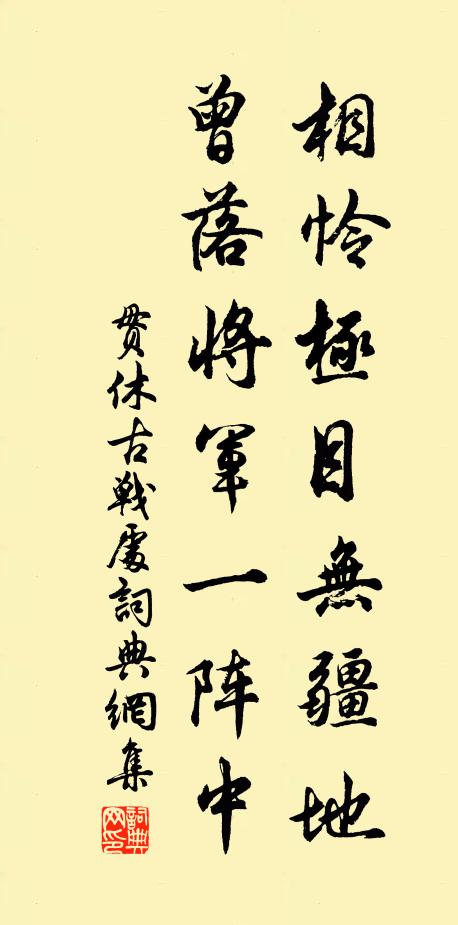 相怜極目無疆地
曾落將軍一阵中
貫休古戰處詞典網集
詞典网印